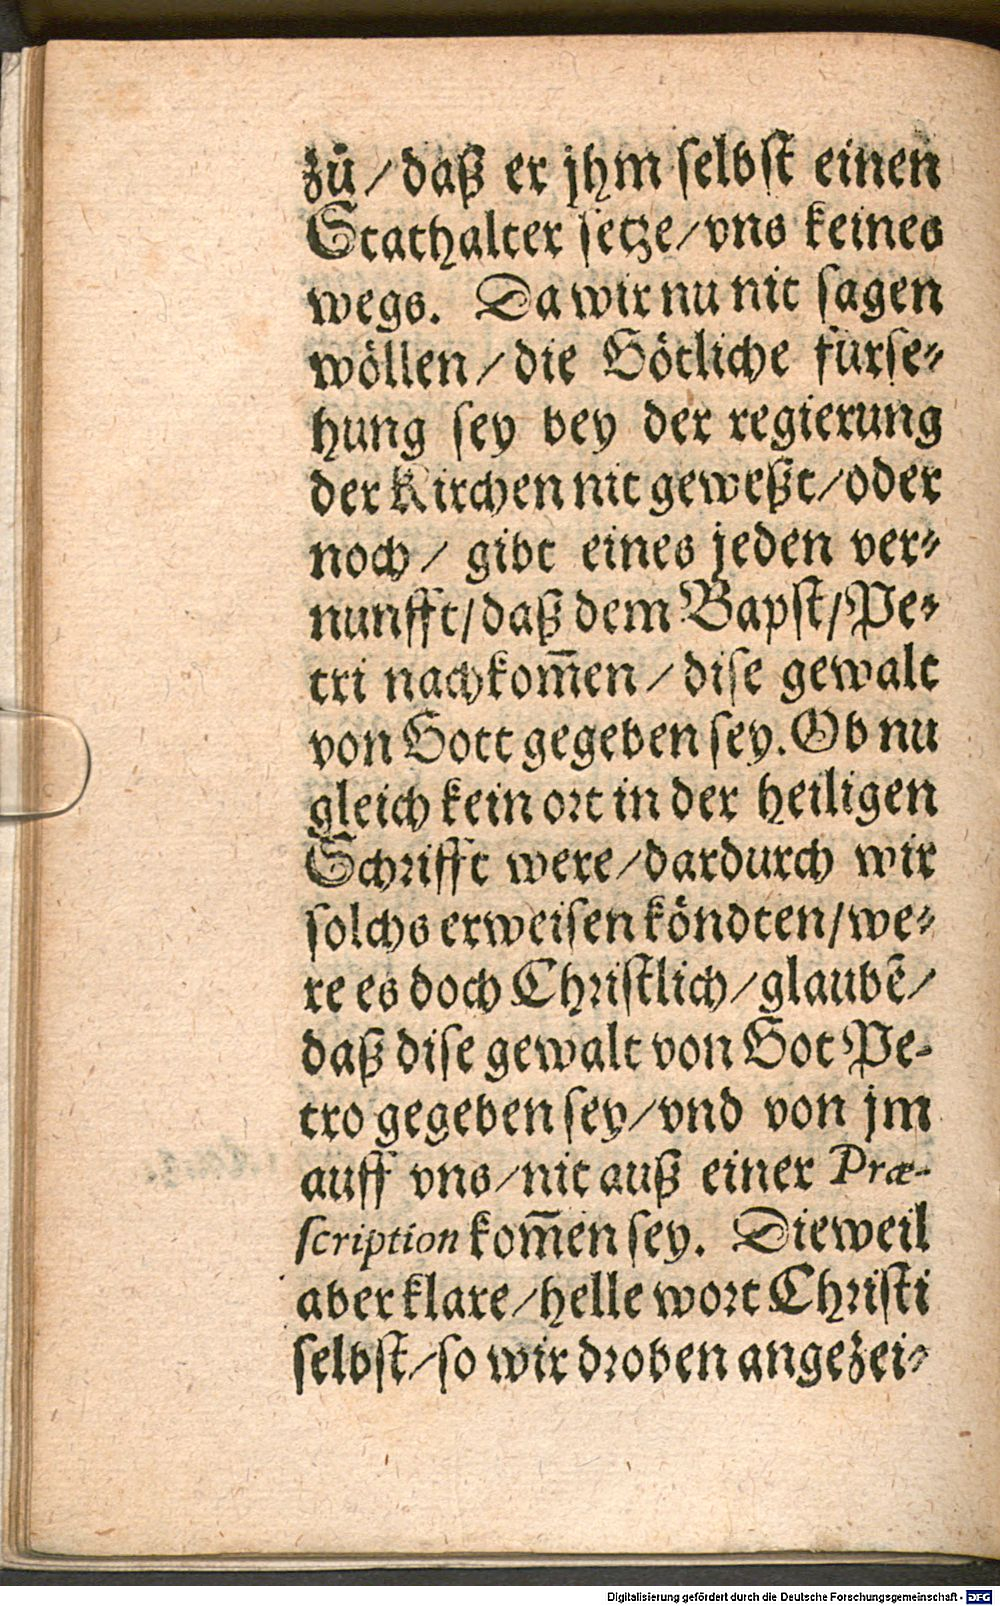 zů / daß er jhm ſelbſt einen
Stathalter ſetze / vns keines
wegs. Da wir nu nit ſagen
wöllen / die Götliche fürſe⸗
hung ſey bey der regierung
der Kirchen nit geweßt / oder
noch / gibt eines jeden ver⸗
nunfft / daß dem Bapſt / Pe⸗
tri nachkom̄en / diſe gewalt
von Gott gegeben ſey. Ob nu
gleich kein ort in der heiligen
Schrifft were / dardurch wir
ſolchs erweiſen köndten / we⸗
re es doch Chriſtlich / glaubẽ /
daß diſe gewalt von Got Pe⸗
tro gegeben ſey / vnd von jm
auff vns / nit auß einer Præ-
ſcription kom̄en ſey. Dieweil
aber klare / helle wort Chriſti
ſelbſt / ſo wir droben angezei⸗
Digitalisierung gefördert durch die Deutsche Forschungsgemeinschaft - DFG